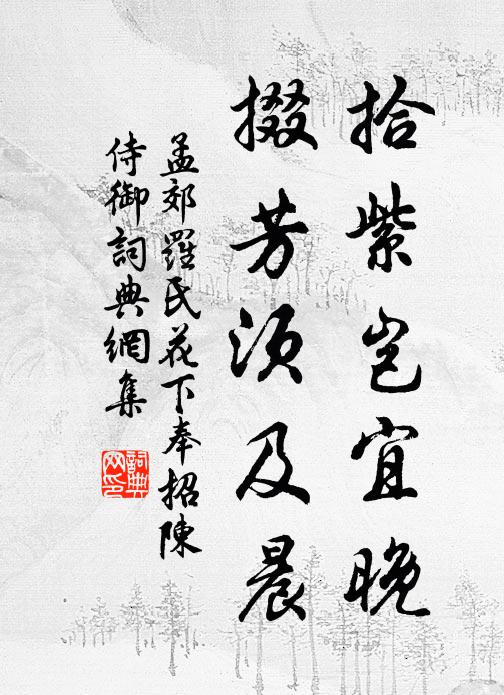 拾紫岂宜晚
掇芳须及晨
孟郊羅氏花下奉招陳
侍御詞典網集
詞典
网印